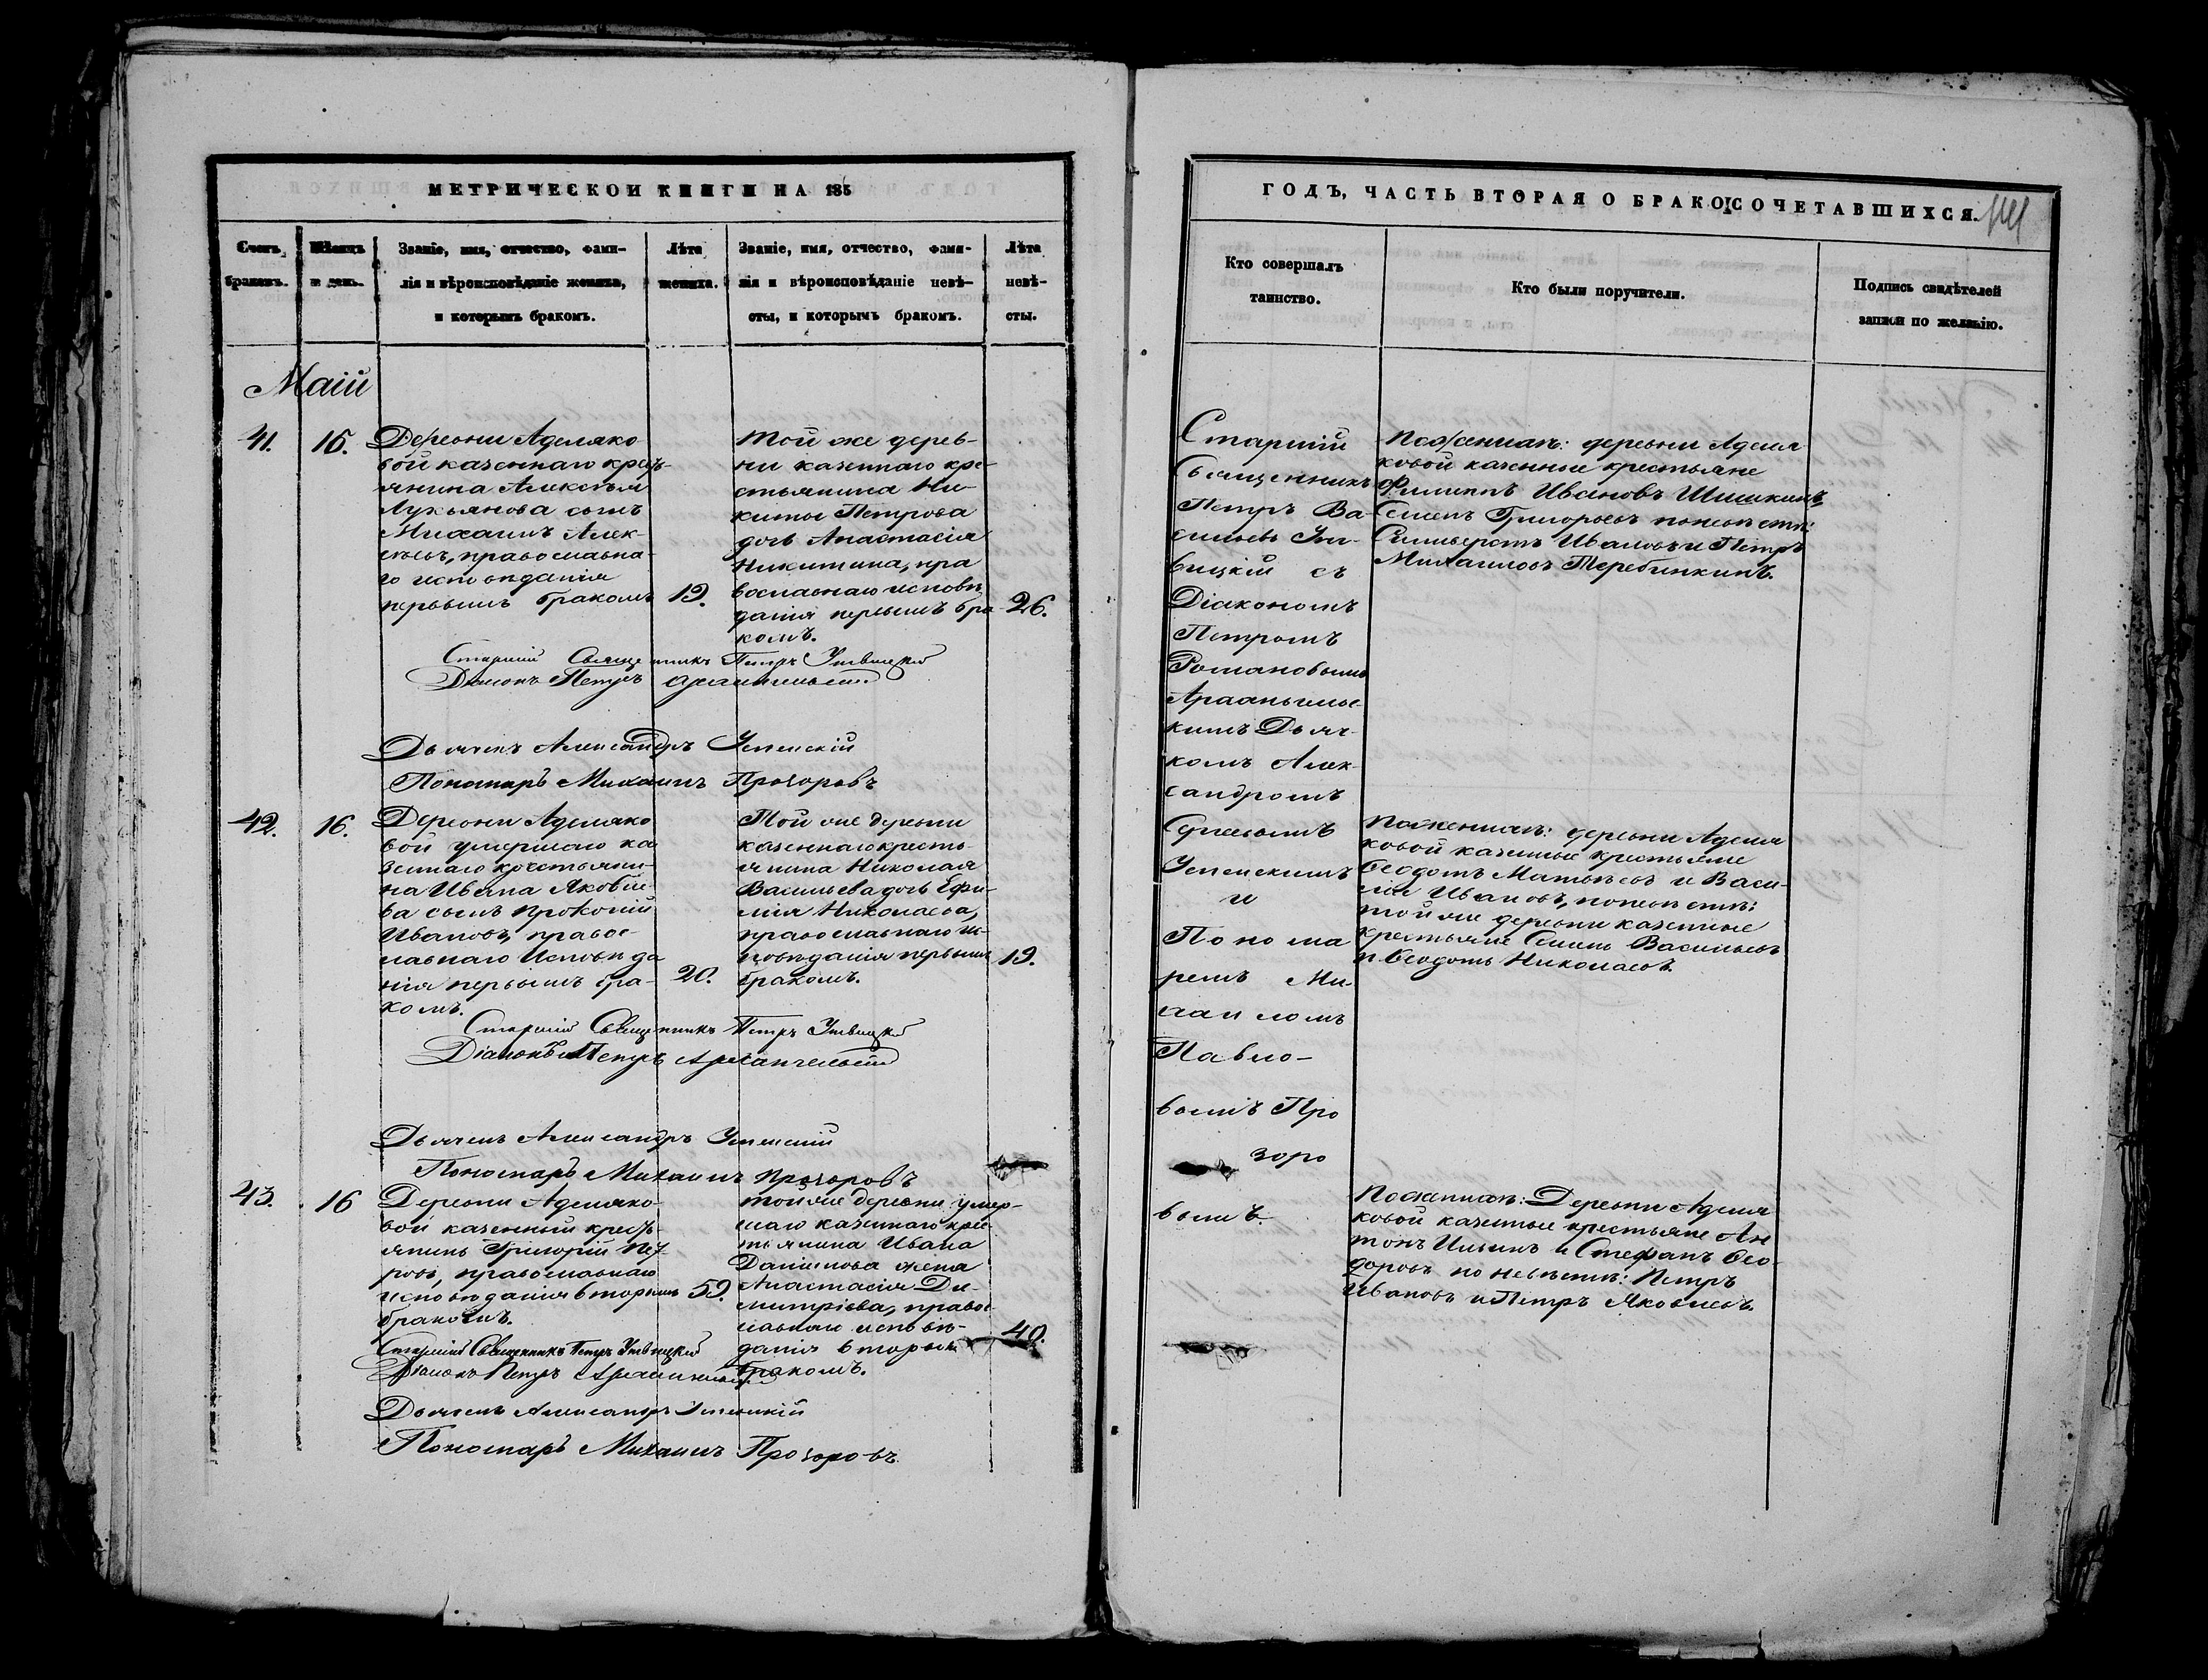 МЕТРИЧЕСКОЙ КНИГИ НА 185
Счетъ браковъ.
Мѣсяцъ и день.
Званіе, имя, отчество, фами-
лія и вѣроисповѣданіе жениха,
и которымъ бракомъ.
Лѣта
жениха.
Званіе, имя, отчество, фами-
лія и вѣроисповѣданіе невѣ-
сты, и которымъ бракомъ.
Лѣта
невѣ-
сты.
Маій
41.
15.
Деревни Аделяко
вой казеннаго кресть-
янина Алексѣя
Лукьянова сынъ
Михаилъ Алек-
сѣевъ, православна-
го исповѣданія
первымъ бракомъ
19.
той же дерев-
ни казеннаго кре-
стьянина Ни-
киты Петрова
дочь Анастасія
Никитина, пра
вославнаго исповѣ
данія первымъ бра
комъ.
26.
Старшій Священникъ Петръ
Діаконъ Петръ Архангельскій
Дьячекъ Александръ Успенскій
Пономарь Михаилъ Прозоровъ
42.
16.
Деревни Аделяко
вой умершаго ка
зеннаго крестьяни-
на Ивана Яковле-
ва сынъ Прокопій
Ивановъ, правос-
лавнаго Исповѣда
нія первымъ бра-
комъ.
20.
Той же деревни
казеннаго кресть-
янина Николая
Васильева дочь Ефи-
мія Николаева,
православнаго ис-
повѣданія первымъ
бракомъ.
19.
Старшій Священникъ Петръ
Діаконъ Петръ Архангельскій
Дьячекъ Александръ Успенскій
Пономарь Михаилъ Прозоровъ
43.
16
Деревни Аделяко-
вой казенный кресть
янинъ Григорій Пет
ровъ, православнаго
исповѣданія вторымъ
бракомъ.
59.
той же деревни умер-
шаго казеннаго крес-
тьянина Ивана
Данилова жена
Анастасія Ди-
митріева, правос-
лавнаго исповѣ-
данія вторымъ
бракомъ.
40.
Старшій Священникъ Петръ
Діаконъ Петръ Архангельскій
Дьячекъ Александръ Успенскій
Пономарь Михаилъ Прозоровъ
ГОДЪ, ЧАСТЬ ВТОРАЯ О БРАКОСОЧЕТАВШИХСЯ.
Кто совершалъ
таинство.
Кто были поручители.
Подпись свидѣтелей
записи по желанію.
Старшій
Священникъ
Петръ Ва-
сильевъ
съ
Діакономъ
Петромъ
Романовымъ
Архангельс-
кимъ Дьяч-
комъ Алек-
сандромъ
Успенскимъ
и
Понома
ремъ Ми
хаиломъ
Павло-
вымъ Про
зоро
вымъ.
По женихѣ: деревни Аделя
ковой казенные крестьяне
Филиппъ Ивановъ Шишкинъ,
Семенъ Григорьевъ по невѣстѣ:
Сильверстъ Ивановъ и Петръ
Михайловъ Теребинкинъ.
По женихѣ: деревни Аделя
ковой казенные крестьяне
Ѳеодотъ Матвѣевъ и Васи-
лій Ивановъ, по невѣстѣ:
той же деревни казенные
крестьяне Семенъ Васильевъ
и Ѳеодотъ Николаевъ.
По женихѣ: Деревни Аделя
ковой казенные крестьяне Ан
тонъ Ильинъ и Стефанъ Ѳео-
доровъ по невѣстѣ: Петръ
Ивановъ и Петръ Яковлевъ.